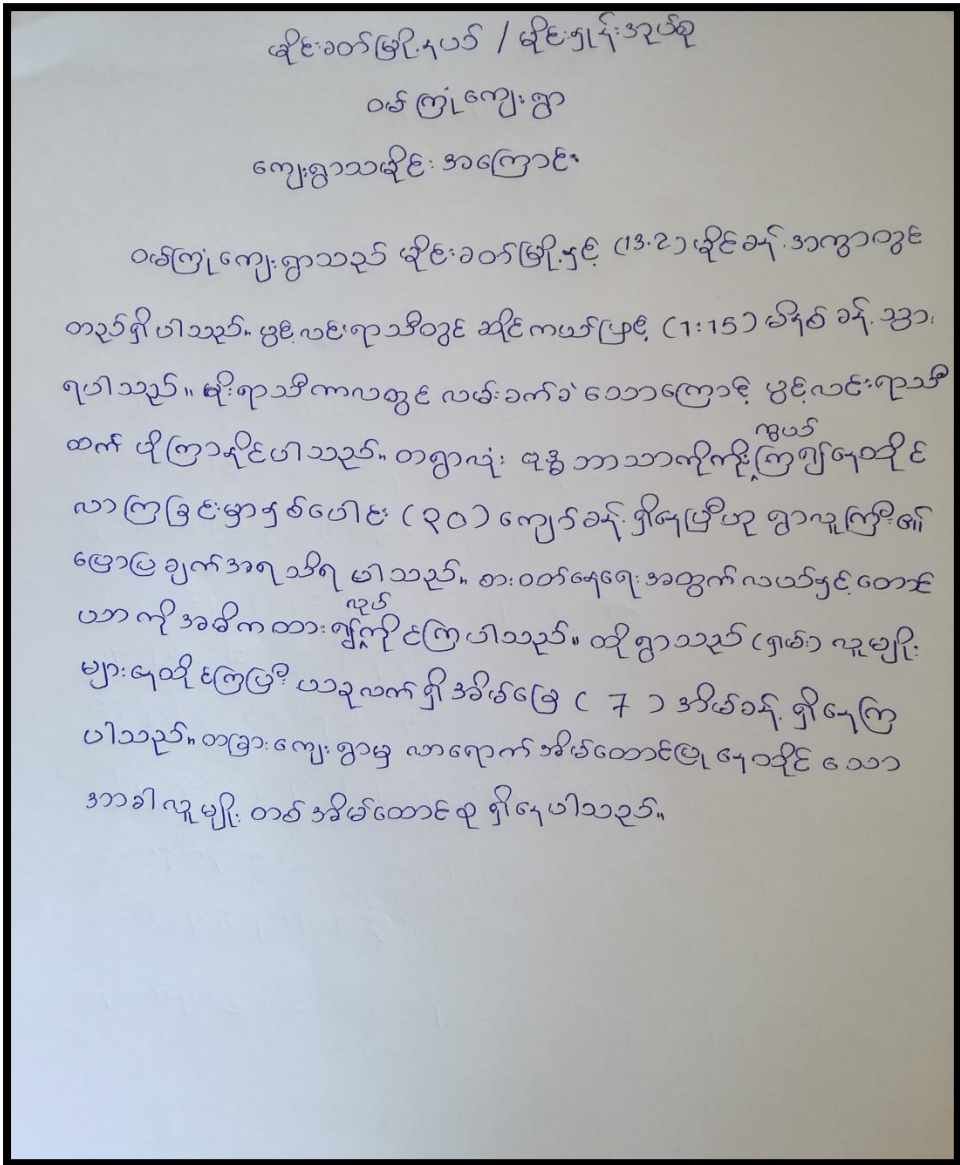 မိုင်းခတ်မြို့နယ် / မိုင်းဟွန်းအုပ်စု
ဝမ်ကြုံကျေးရွာ
ကျေးရွာသမိုင်းအကြောင်း
ဝမ်ကြုံကျေးရွာသည် မိုင်းခတ်မြို့နှင့် (13.2) မိုင်ခန့်အကွာတွင်
တည်ရှိပါသည်။ ပွင့်လင်းရာသီတွင် ဆိုင်ကယ်ဖြင့် (1:15) မိနစ် ခန့် သွား
ရပါသည်။ မိုးရာသီကာလတွင် လမ်းခက်ခဲသောကြောင့် ပွင့်လင်းရာသီ
ထက် ပိုကြာနိုင်ပါသည်။ တရွာလုံး ဗုဒ္ဓဘာသာကိုကိုးကွယ်ကြ၍နေထိုင်
လာကြခြင်းမှာနှစ်ပေါင်း (၃၀) ကျော်ခန့်ရှိနေပြီဟု ရွာလူကြီး၏
ပြောပြချက်အရသိရပါသည်။ စားဝတ်နေရေးအတွက်လယ်နှင့်တောင်
ယာကိုအဓိကထား၍လုပ်ကိုင်ကြပါသည်။ ထိုရွာသည် (ရှမ်း) လူမျိုး
များနေထိုင်ကြပြီး ယခုလက်ရှိအိမ်ခြေ ( 7 ) အိမ်ခန့် ရှိနေကြ
ပါသည်။ တခြားကျေးရွာမှ လာရောက်အိမ်ထောင်ပြုနေထိုင်သော
အာခါလူမျိုး တစ်အိမ်ထောင်စု ရှိနေပါသည်။